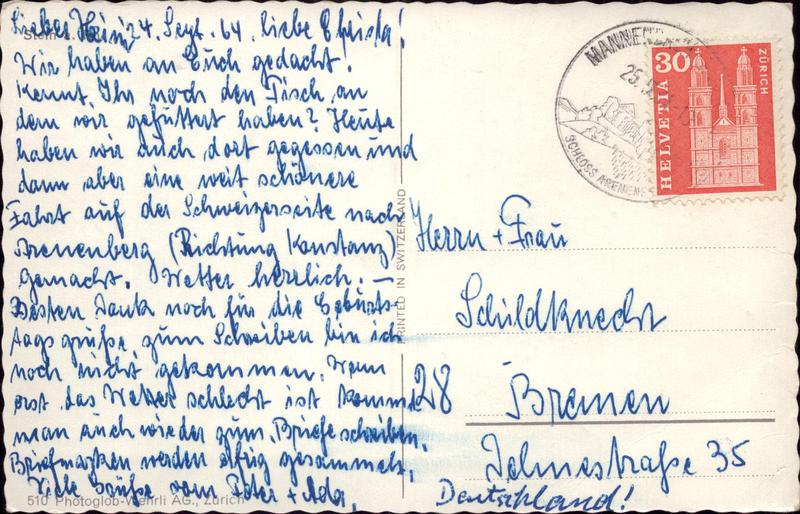 Lieber Heini 24. Sept. 64. liebe Christa!
Stein
Wir haben an Euch gedacht.
Kennt Ihr noch den Tisch an
dem wir gefuttert haben? Heute
haben wir auch dort gegessen und
dann aber eine weit schönere
Fahrt auf der Schweizerseite nach
Arenenberg (Richtung Konstanz)
gemacht. Wetter herrlich. –
Besten Dank noch für die Geburts-
tagsgrüße, zum Schreiben bin ich
noch nicht gekommen. Wenn
erst das Wetter schlecht ist kommt
man auch wieder zum Briefe schreiben.
Briefmarken werden eifrig gesammelt.
Viele Grüße vom Peter + Ada.
510 Photoglob-Wehrli AG., Zürich
PRINTED IN SWITZERLAND
MANNEN
25.
SCHLOSS ARENEN
30
HELVETIA
ZÜRICH
Herrn + Frau
Schildknecht
28 Bremen
Delmestraße 35
Deutschland!